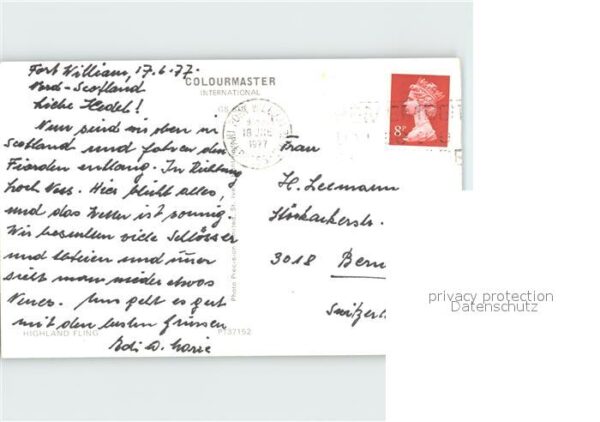 Fort William, 17.6.77.
Nord-Scotland
COLOURMASTER
INTERNATIONAL
Liebe Hedel!
Nun sind wir oben in
Scotland und fahren den
Fiorden entlang. In Richtung
Loch Ness. Hier blüht alles,
und das Wetter ist sonnig.
Wir besuchen viele Schlösser
und Abteien und immer
sieht man wieder etwas
Neues. Uns geht es gut
mit den besten Grüssen
Edi u.
HIGHLAND FLING
PT37152
Photo Precision Limited, St.
18 JUN
1977
8P
Frau
H. Leemann
3018 Bern
privacy protection
Datenschutz